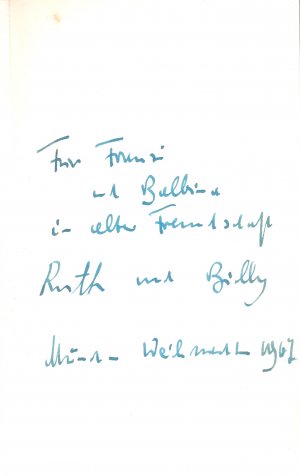 Für Franzi
und Balbina
in alter Freundschaft
Ruth und Billy
München Weihnacht 1967